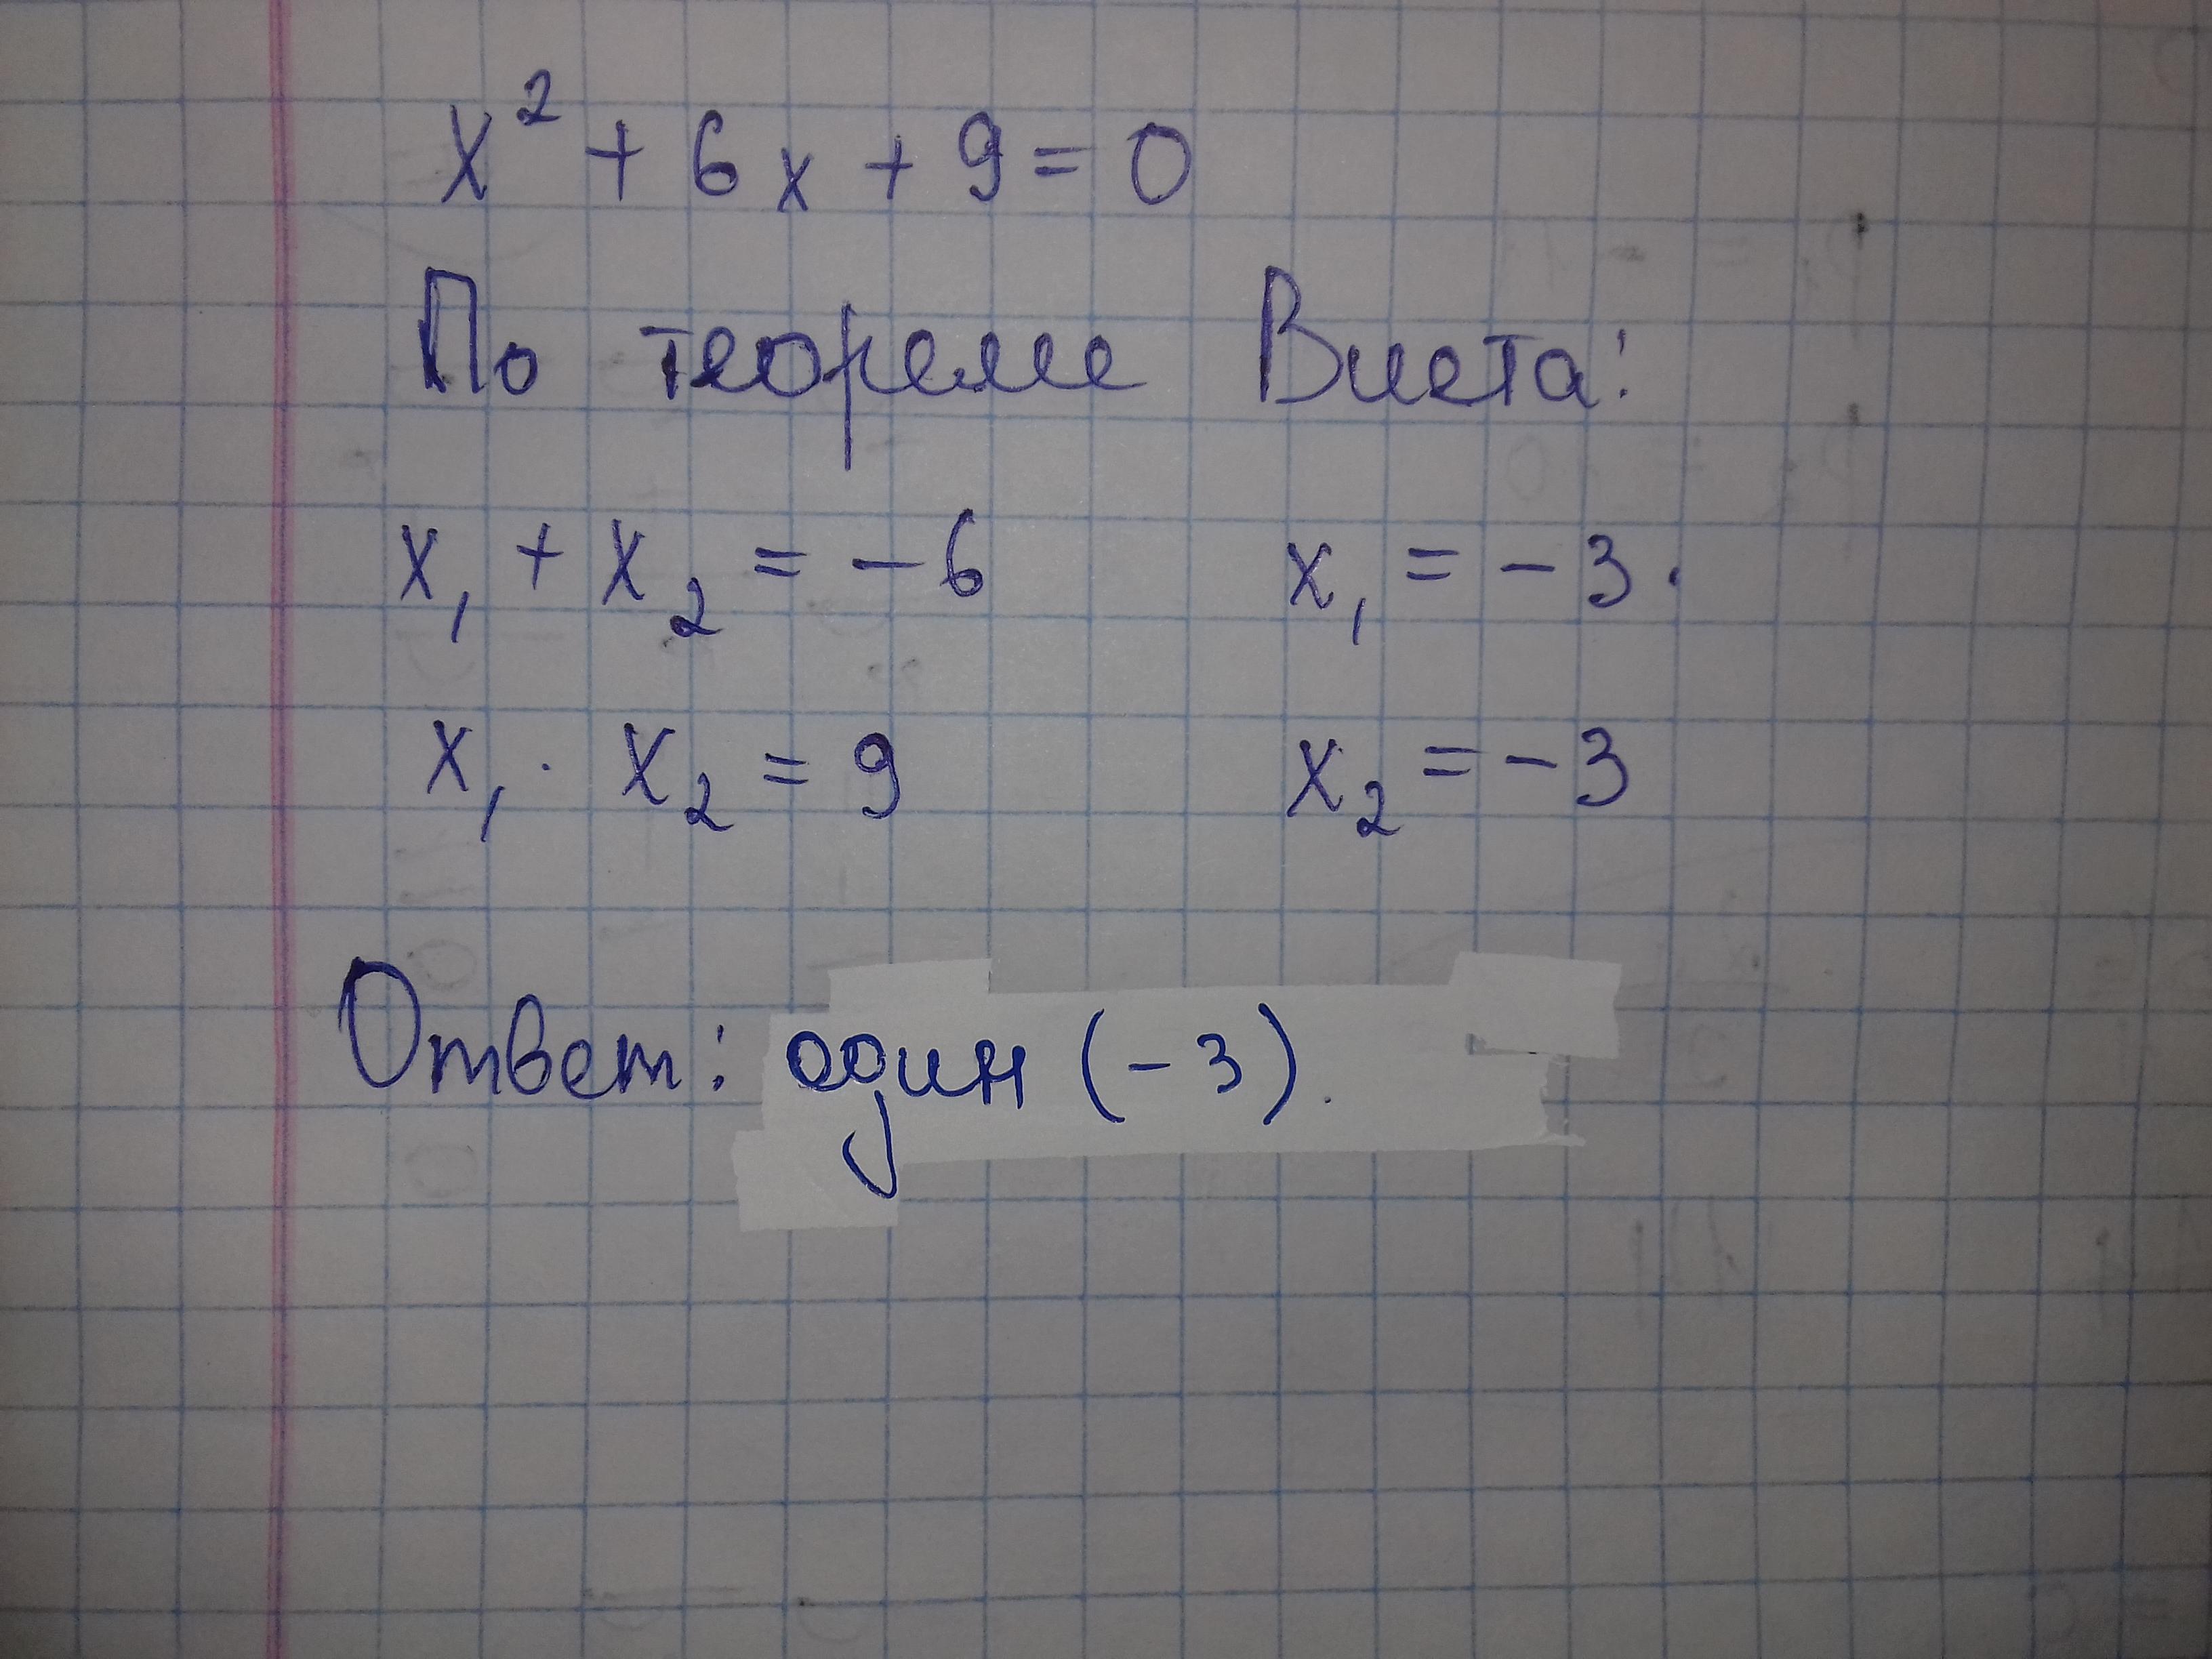 x² + 6x + 9 = 0
По теореме Виета:
x₁ + x₂ = -6 x₁ = -3.
x₁ · x₂ = 9 x₂ = -3
Ответ: один (-3).